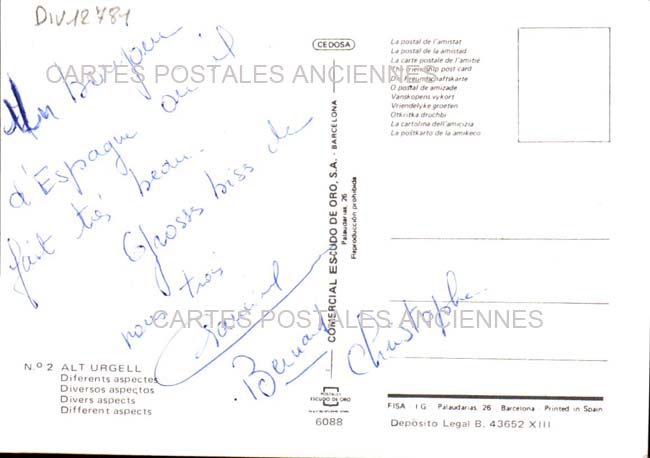 Div12781
Un Bonjour
d'Espagne ou il
fait très beau.
Grosses biss de
nous trois
Bernard
Christophe
CARTES POSTALES ANCIENNES
CARTES POSTALES ANCIENNES
N.º 2 ALT URGELL
Diferents aspectes
Diversos aspectos
Divers aspects
Different aspects
CEDOSA
COMERCIAL ESCUDO DE ORO, S.A. - BARCELONA
Palaudarias, 26
Reproducción prohibida
POSTALES
ESCUDO DE ORO
6088
La postal de l'amistat
La postal de la amistad
La carte postale de l'amitié
The friendship post card
Die Freundschaftskarte
O postal de amizade
Vänskopens vykort
Vriendelyke groeten
Otkritka druchbi
La cartolina dell'amicizia
La poŝtkarto de la amikeco
FISA I.G. Palaudarias, 26 Barcelona Printed in Spain
Depósito Legal B. 43652 XIII